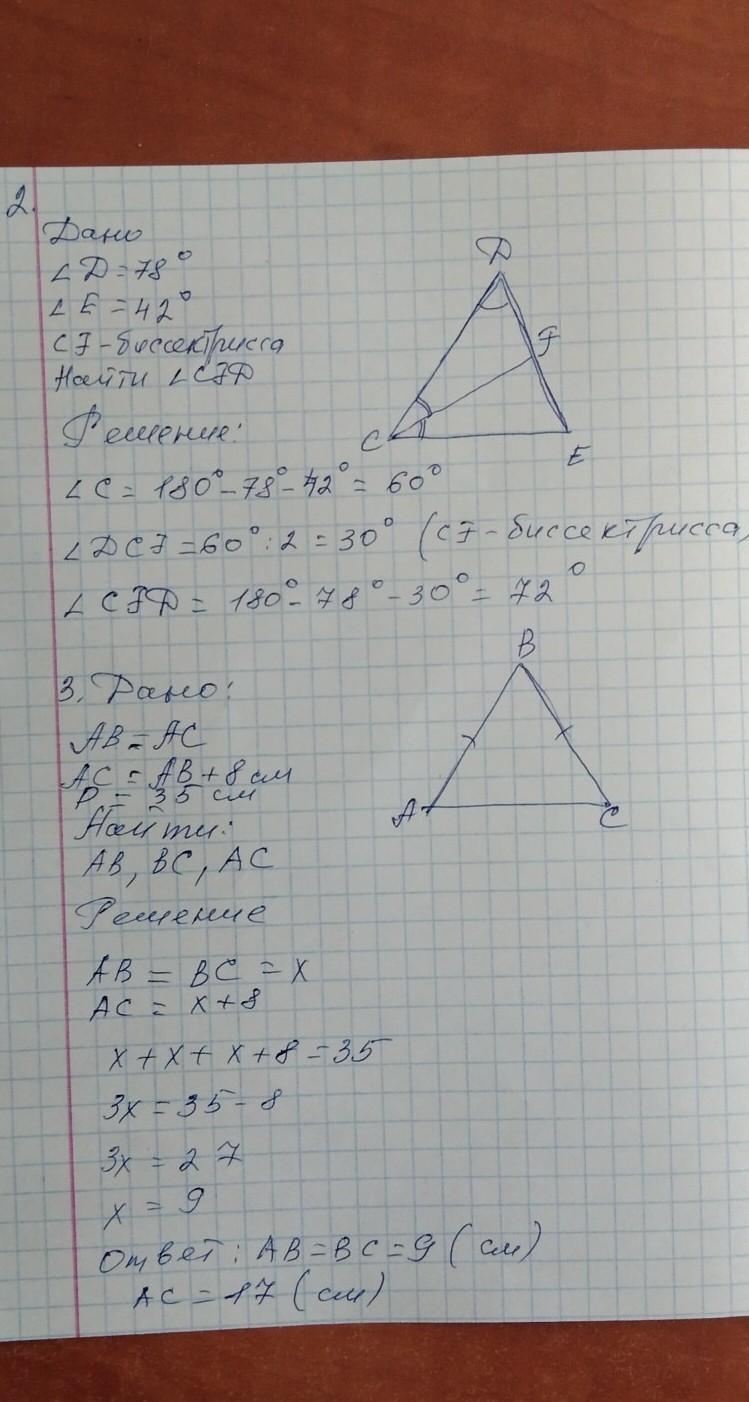 2.
Дано
∠D=78°
∠E=42°
CF-биссектрисса
Найти ∠CFD
Решение:
∠C = 180°-78°-42°= 60°
∠DCF=60°:2=30° (CF-биссектрисса)
∠CFD = 180°-78°-30°= 72°
D
F
C
E
3. Дано:
AB=AC
AC = AB+8 см
P = 35 см
Найти:
AB, BC, AC
Решение
AB = BC = x
AC = x+8
x+x+x+8=35
3x=35-8
3x=27
x = 9
Ответ: AB=BC=9 (см)
AC=17 (см)
B
A
C